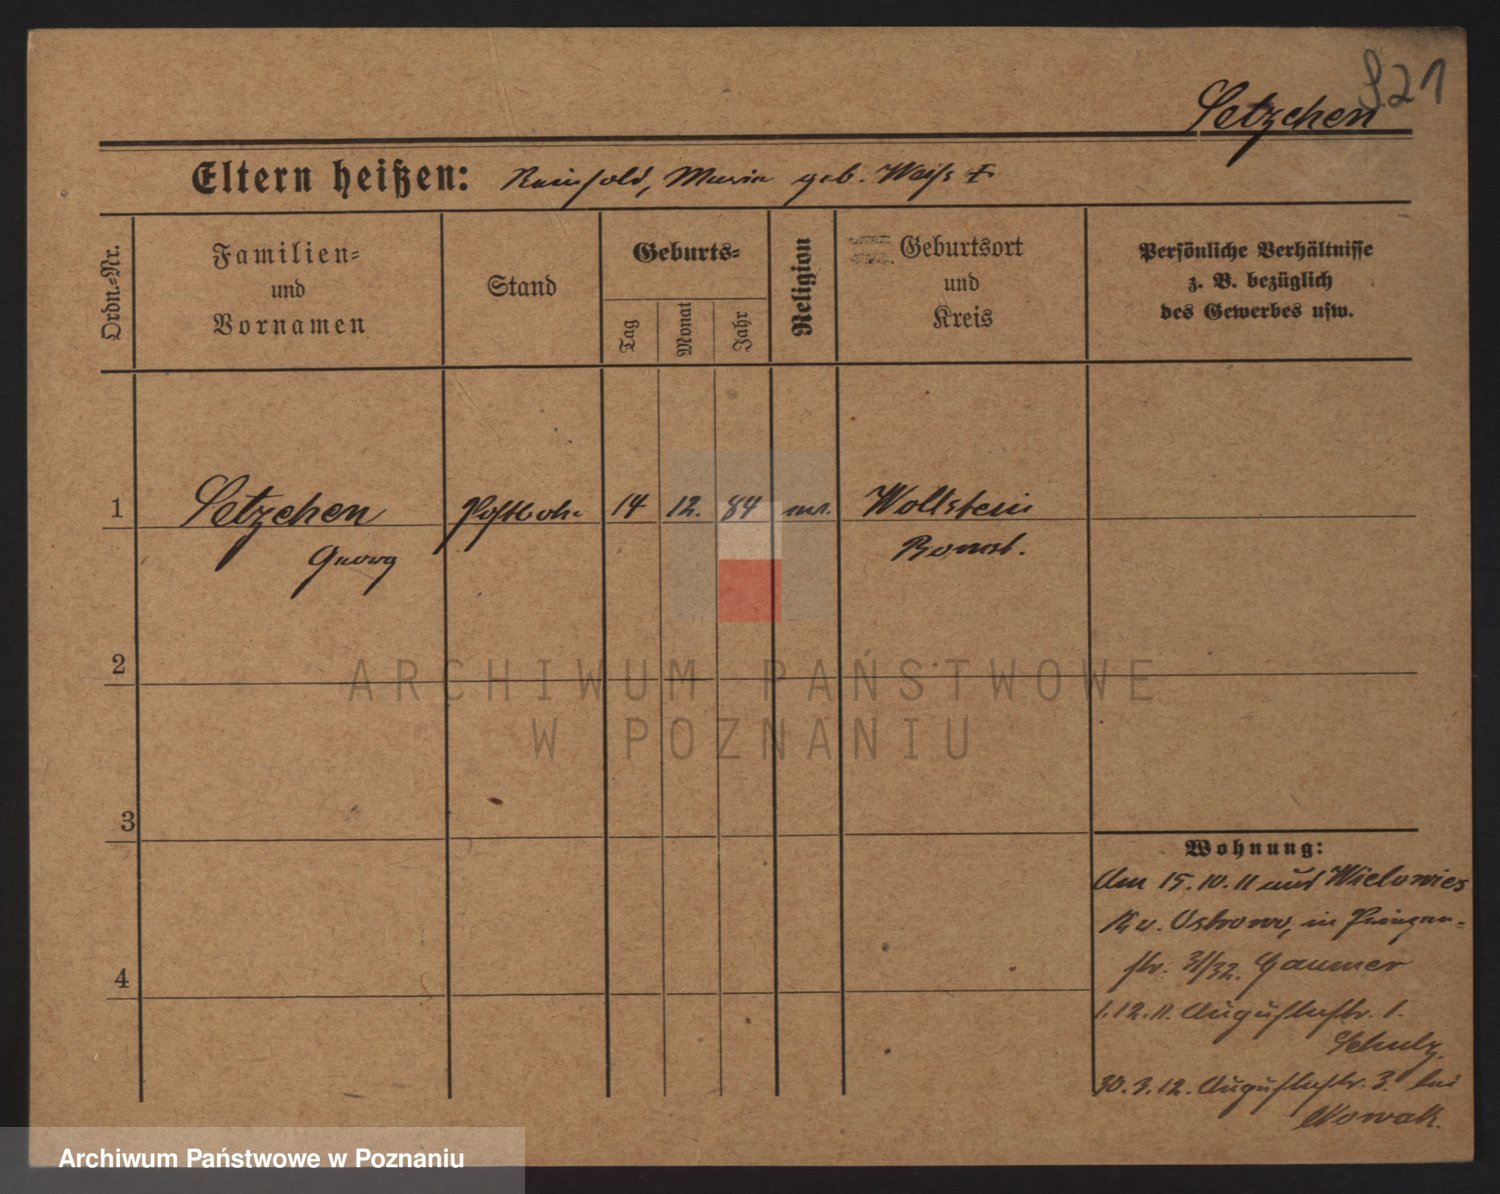 S.21
Setzchen
Eltern heißen: Reinhold, Maria geb. Weiß †
Ordn.-Nr.
Familien-
und
Vornamen
Stand
Geburts-
Tag
Monat
Jahr
Religion
Geburtsort
und
Kreis
Persönliche Verhältnisse
z. B. bezüglich
des Gewerbes usw.
1 Setzchen Postbote 14 12. 84 Wollstein
Georg Bomst.
2
3
4
Wohnung:
Am 15.10.11 aus Wielowies
Kr. Ostrowo, in Prinzen-
str. 31/32. Gaumer
1.12.11. Augustastr. 1.
Schulz.
30.3.12. Augustastr. 3. bei
Nowak.
ARCHIWUM PAŃSTWOWE
W POZNANIU
Archiwum Państwowe w Poznaniu